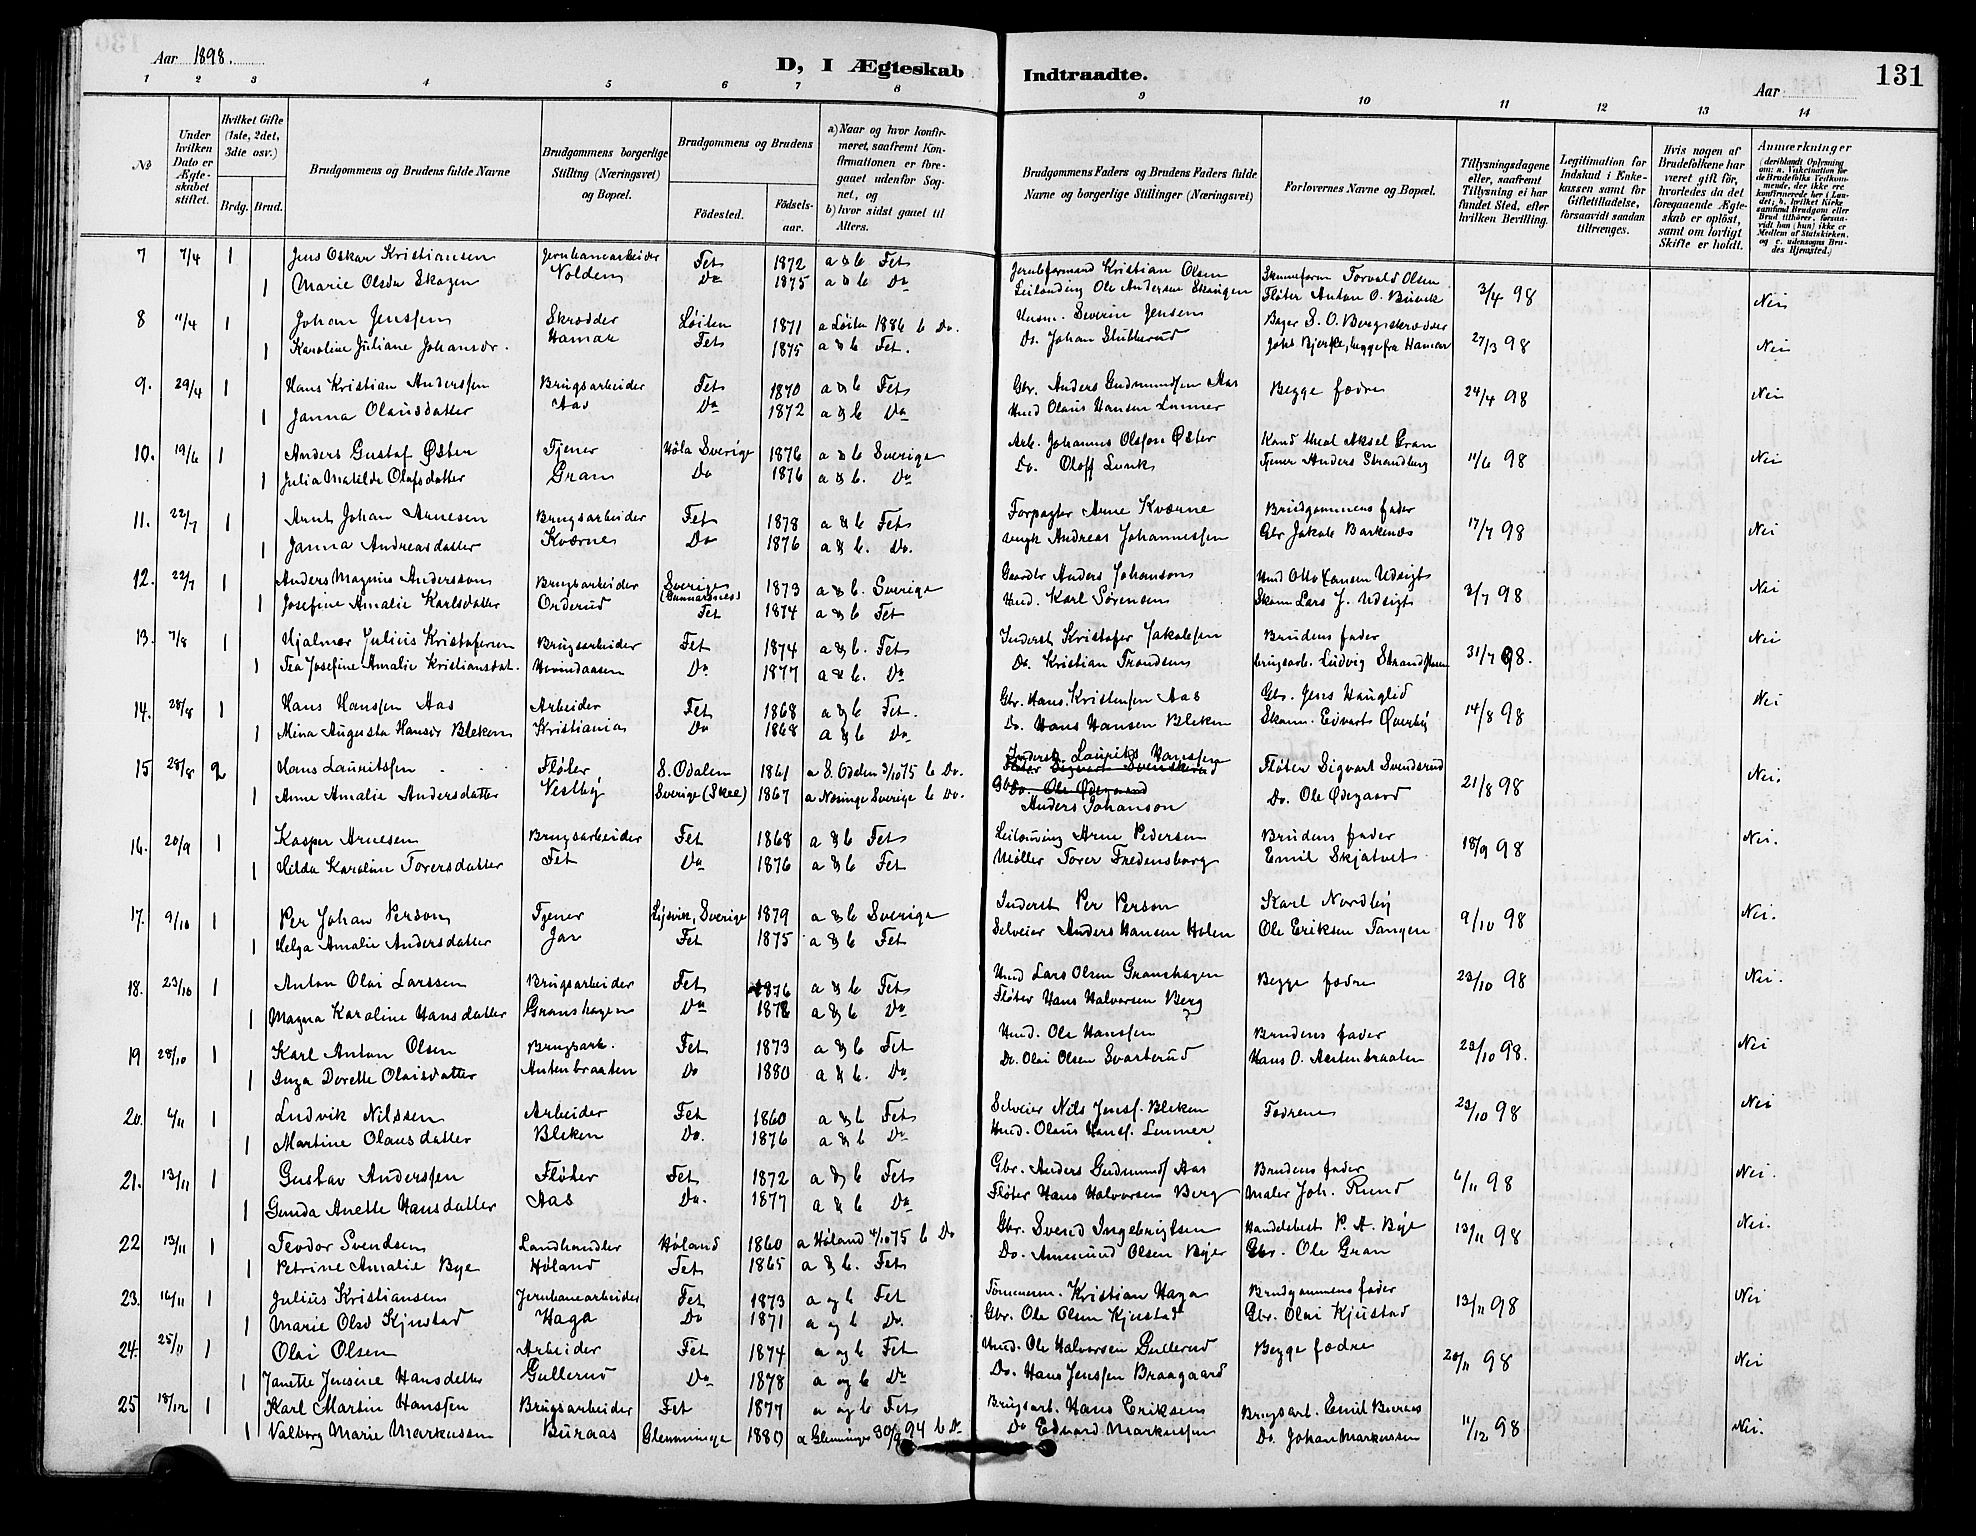 Aar 1898.
D, I Ægteskab Indtraadte.
Aar
131
1 2 3 4 5 6 7 8 9 10 11 12 13 14
No
Under hvilken Dato er Ægteskabet stiftet.
Hvilket Gifte (1ste, 2det, 3die osv.)
Brdg. Brud.
Brudgommens og Brudens fulde Navne
Brudgommens borgerlige Stilling (Næringsvei) og Bopæl.
Brudgommens og Brudens
Fødested.
Fødselsaar.
a) Naar og hvor konfirmeret, saafremt Konfirmationen er foregaaet udenfor Sognet, og
b) hvor sidst gaaet til Alters.
Brudgommens Faders og Brudens Faders fulde Navne og borgerlige Stillinger (Næringsvei)
Forlovernes Navne og Bopæl.
Tillysningsdagene eller, saafremt Tillysning ei har fundet Sted, efter hvilken Bevilling.
Legitimation for Indskud i Enkekassen samt for Giftetilladelse, forsaavidt saadan tiltrænges.
Hvis nogen af Brudefolkene har været gift før, hvorledes da det foregaaende Ægteskab er opløst, samt om lovligt Skifte er holdt.
Anmærkninger
7 7/4 1 Jens Oskar Kristiansen Jernbanearbeider Fet 1872 a & b Fet Jernbformand Kristian Olsen Torvald Olsen 3/4 98 Nei
1 Marie Olsdr Skogen Nolden Do 1875 a & b Do Leilending Ole Andersen Skougen Fløter Anton O.
8 11/4 1 Johan Jenssen Skrædder Løiten 1871 a Løiten 1886 b Do. Husm. Severin Jensen Bager S. O. Berg skrædder 27/3 98 Nei
1 Karoline Juliane Johansdr. Hamar Fet 1875 a & b Fet. Do. Johan Stubberud Johs Bjerke, begge fra Hamar
9. 29/4 1 Hans Kristian Anderssen Brugsarbeider Fet 1870 a & b Fet Gbr. Anders Gudmundsen Aas Begge fædre 24/4 98 Nei
1 Janna Olausdatter Aas Do 1872 a & b Do Husd Olaus Hansen Linner
10. 19/6 1 Anders Gustaf Øster Tjener Höla Sverige 1876 a & b Sverige Arb. Johannes Olsson Øster Kand theol Aksel Gran 11/6 98 Nei
1 Julia Matilde Olafsdatter Gran Do 1876 a & b. Do Do. Oloff Lunk Tjener Anders Strandberg
11. 22/7 1 Arnt Johan Arnesen Brugsarbeider Fet 1878 a & b Fet Forpagter Arne Kværne Brudgommens fader 17/7 98 Nei
1 Janna Andreasdatter Kværne Do 1876 a & b. Do. Andreas Johannessen Gbr Jakob Barkenæs
12. 22/7 1 Anders Magnus Anderssen Brugsarbeider Sverige (Gunnarsnes) 1873 a & b. Sverige Gaardbr Anders Johanson Husd Otto Hansen Udsigt 3/7 98 Nei
1 Josefine Amalie Karlsdatter Orderud Fet 1874 a & b Fet Husd. Karl Sørensen Skom Lars J. Udsigt
13. 7/8 1 Hjalmar Julius Kristofersen Brugsarbeider Fet 1874 a & b. Fet Inderst Kristofer Jakobsen Brudens fader 31/7 98. Nei
1 Tea Josefine Amalie Kristiansdat. Hovindaasen Do. 1877 a & b. Do Do. Kristian Trondsen brugsarb. Ludvig
14. 28/8 1 Hans Hanssen Aas Arbeider Fet 1868 a & b Fet. Gbr. Hans Kristensen Aas Gbr. Jens Hauglid 14/8 98 Nei
1 Mina Augusta Hansdr Bleken Kristiania Do 1868 a & b Do Do. Hans Hansen Bleken Skom. Edvart Øverby
15 28/8 2 Hans Lauritssen Fløter S. Odalen 1861 a S. Odalen 3/10 75 b Do. Inderst Laurits Hanssen Fløter Sigvart Svendsrud 21/8 98 Nei.
1 Anne Amalie Andersdatter Vestby Sverige (Skee) 1867 a Nosinge Sverige b Do. Anders Johanson Do. Ole Ødegaard
16. 20/9 1 Kasper Arnesen Brugsarbeider Fet 1868 a & b Fet Leilending Arne Pedersen Brudens fader 18/9 98 Nei.
1 Hilda Karoline Toversdatter Fet Do 1876 a & b Fet Møller Tover Fredensborg Emil Skjatvet
17. 9/10 1 Per Johan Person Tjener Sverige 1879 a & b Sverige Inderst Per Person Karl Nordby 9/10 98 Nei.
1 Helga Amalie Andersdatter Jar Fet 1875 a & b Fet Selveier Anders Hansen Holen Ole Eriksen Tangen
18. 23/10 1 Anton Olai Larssen Brugsarbeider Fet 1876 a & b Fet Husd Lars Olsen Granshagen Begge fædre 23/10 98 Nei.
1 Magna Karoline Hansdatter Granshagen Do 1878 a & b Do Fløter Hans Halvorsen Berg ?
19 28/10 1 Karl Anton Olsen Brugsarb. Fet 1873 a & b Fet Husd. Ole Hanssen Brudens fader 23/10 98. Nei
1 Inga Dorette Olaisdatter Antenbraaten Do 1880 a & b. Do Do. Olai Olsen Svarterud Hans O. Antenbraaten
20. 4/11 1 Ludvik Nilssen Arbeider Fet 1860 a & b Fet Selveier Nils Jensf. Bleken Fædrene 23/10 98 Nei
1 Martine Olausdatter Bleken Do. 1876 a & b Do Husd. Olaus Hansf. Linner
21. 13/11 1 Gustav Anderssen Fløter Fet 1872 a & b Fet Gbr. Anders Gudmunds Aas Brudens fader 6/11 98 Nei.
1 Gunda Anette Hansdatter Aas Do. 1877 a & b Do Fløter Hans Halvorsen Berg Maler Joh. Rund
22 13/11 1 Teodor Svendsen Landhandler Høland 1860 a Høland 4/10 75 b Do Gbr. Svend Ingebrigtsen Handelsbest P. A. Bye 13/11 98 Nei.
1 Petrine Amalie Bye Høland Fet 1865 a & b. Fet Do. Amesund Olsen Byer Gbr. Ole Gran
23. 16/11 1 Julius Kristiansen Jernbanearbeider Fet 1873 a og b Fet Tømmerm. Kristian Haga Brudgommens fader 13/11 98 Nei
1 Marie Olsd Kjustad Haga Do 1871 a og b Do. Gbr. Ole Olsen Kjustad Gbr. Olai Kjustad
24. 25/11 1 Olai Olsen Arbeider Fet 1874 a og b Fet Husd. Ole Halvorsen Gullerud Begge fædre 20/11 98 Nei
1 Janette Jensine Hansdatter Gullerud Do 1878 a og b Do Do. Hans Jenssen Braagaard
25 18/12 1 Karl Martin Hanssen Brugsarbeider Fet 1877 a og b Fet Brugsarb. Hans Eriksen Brugsarb. Emil Buraas 11/12 98 Nei.
1 Valborg Marie Markussen Buraas Glemminge 1880 a Glemminge 30/9 94 b Do Do Edvard Markussen Do. Johan Markussen